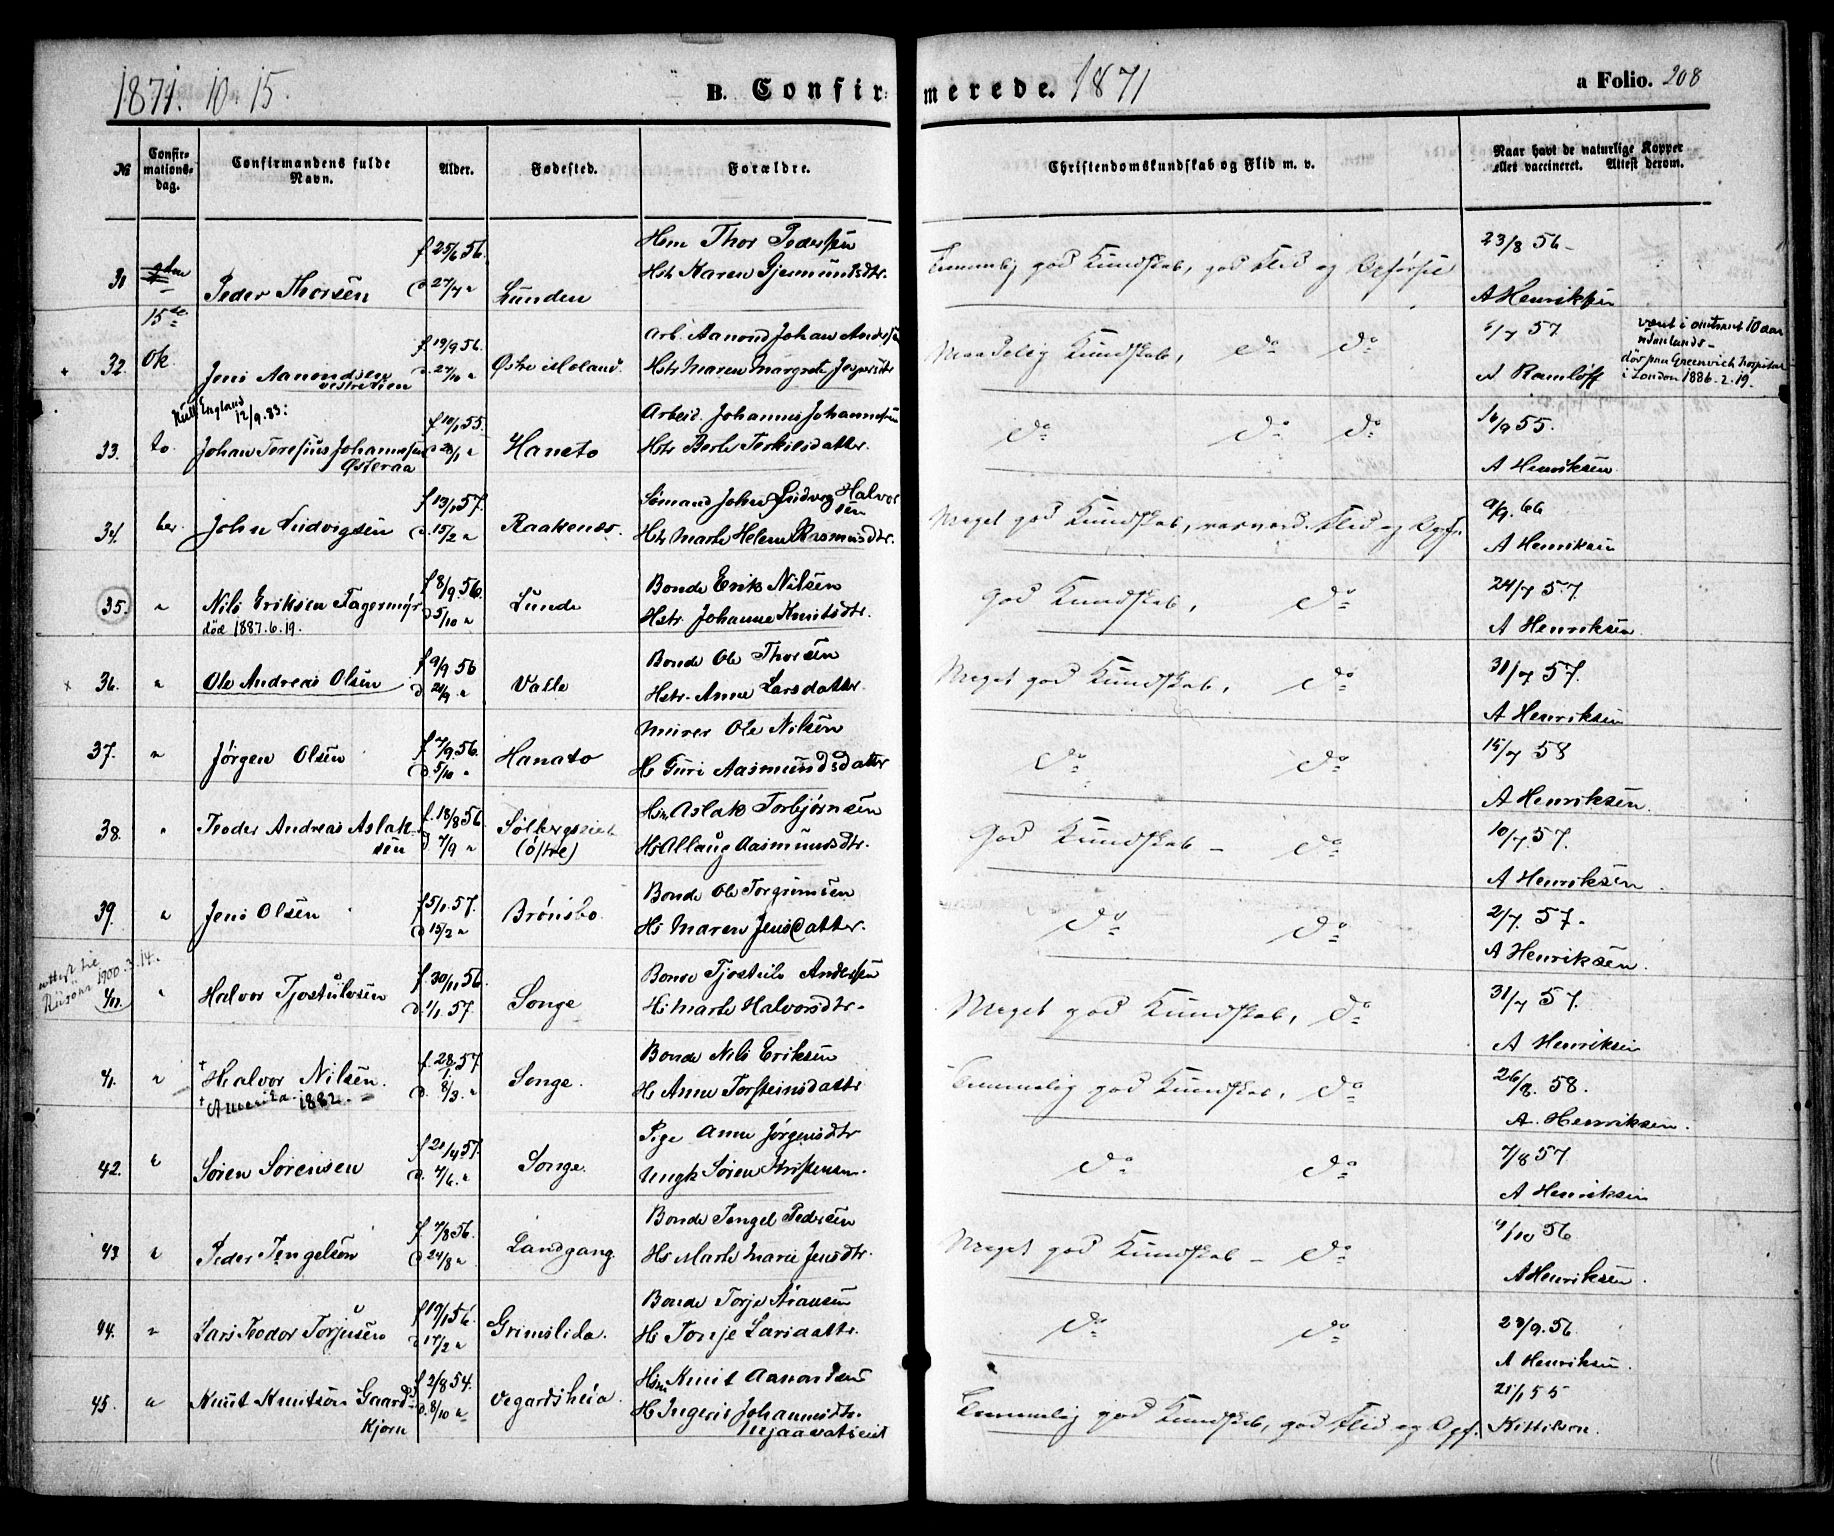 1871. 10. 15.
B. Confirmerede. 1871
a Folio. 208
№
Confirmationsdag.
Confirmandens fulde Navn.
Alder.
Fødested.
Forældre.
Christendomskundskab og Flid m. v.
Naar havt de naturlige Kopper eller vaccineret. Attest derom.
31 Peder Thorsen f 25/6 56. d 27/7 " Lunden
Hsm Thor Pedersen
Hstr Karen Gjermundsdtr
Temmelig god Kundskab, god Flid og Opførsel
23/8 56 -
A Henriksen
15de
32. Ok Jens Aanondsen
vestre lien
f 19/9 56. d. 27/10 " Østre Moland.
Arb. Aanond Johan Anders
Hstr Maren Margrete Jespersdtr
Maadelig Kundskab, do do
6/7 57
A Ramløff
været i omtrent 10 aar
udenlands -
død paa Greenvich hospital
i London 1886. 2. 19.
England
12/9. 83:
33. to Johan Teresius Johannesen
Østeraa
f 10/1 55. d 28/1 " Haneto
Arbeid. Johannes Johannesen
Hstr Berte Terkilsdatter.
do do do
16/9 55.
A Henriksen
34. ber John Ludvigsen f 13/1 57. d. 15/2 " Raakenes.
Sømand John Ludvig Halvorsen
Hstr Marte Helene Rasmusdtr.
Meget god Kundskab, Flid og Opf.
9/9. 66
A Henriksen
35. " Nils Eriksen Fagermyr
død 1887. 6. 19.
f 8/9 56. d 5/10 " Lunde
Bonde Erik Nilsen
Hstr. Johanne Knutsdtr.
God Kundskab, do
24/7 57.
A Henriksen.
x 36. " Ole Andreas Olsen f 9/9 56 d 21/9 " Valle
Bonde Ole Thorsen
Hstr. Anne Larsdatter.
Meget god Kundskab, do
31/7 57.
A Henriksen
37. " Jørgen Olsen f 7/9 56. d 5/10 " Hanato
Murer Ole Nilsen
H Guri Aasmundsdatter
do do
15/7 58
A Henriksen.
38. " Teoder Andreas Aslaksen f. 18/8 56 d 7/9 "
(østre)
Hsm Aslak Torbjørnsen
Hs Allaug Aasmundsdtr.
God Kundskab - do
10/7. 57.
A Henriksen.
39. " Jens Olsen f 5/1. 57. d 15/2 " Brønsbo.
Bonde Ole Torgrimsen
Hs Maren Jensdatter.
do do
2/7. 57.
A Henriksen.
attest til
Risøer 1900. 3. 14.
40. " Halvor Tjostulvsen f. 30/11. 56. d. 1/1. 57. Songe
Bonde Tjostulv Andersen
Hs Marte Halvorsdtr.
Meget god Kundskab, do
31/7 57.
A Henriksen
41. " Halvor Nilsen.
Amerika 1882.
f. 28/1. 57 d. 8/3. " Songe.
Bonde Nils Eriksen
H Anne Torsteinsdattr
Temmelig god Kundskab, do
26/8. 58.
A. Henriksen.
42. " Søren Sørensen f 21/4 57. d. 7/6. " Songe.
Pige Anne Jørgensdtr
Ungk Søren Kristensen.
do do
7/8 57
A Henriksen
43 " Peder Tengelsen f 7/8 56. d 24/8 " Landgang.
Bonde Tengel Pedersen
Hs Marte Marie Jensdtr.
Meget god Kundskab - do
9/10 56
A Henriksen.
44. " Lars Teodor Torjusen f 19/1 56. d 17/2 " Grimslida.
Bonde Torje
H Tonje Larsdattr.
do do
23/9. 56.
A Henriksen.
45. " Knut Knutson Gaards-
Kjern
f 2/8 54. d. 8/10 " Vegardsheia.
Hsm Knut Aanonsen
H Ingerie Johannesdtr.
Temmelig god Kundskab, god Flid og Opf.
21/1 55
Kittilsen.